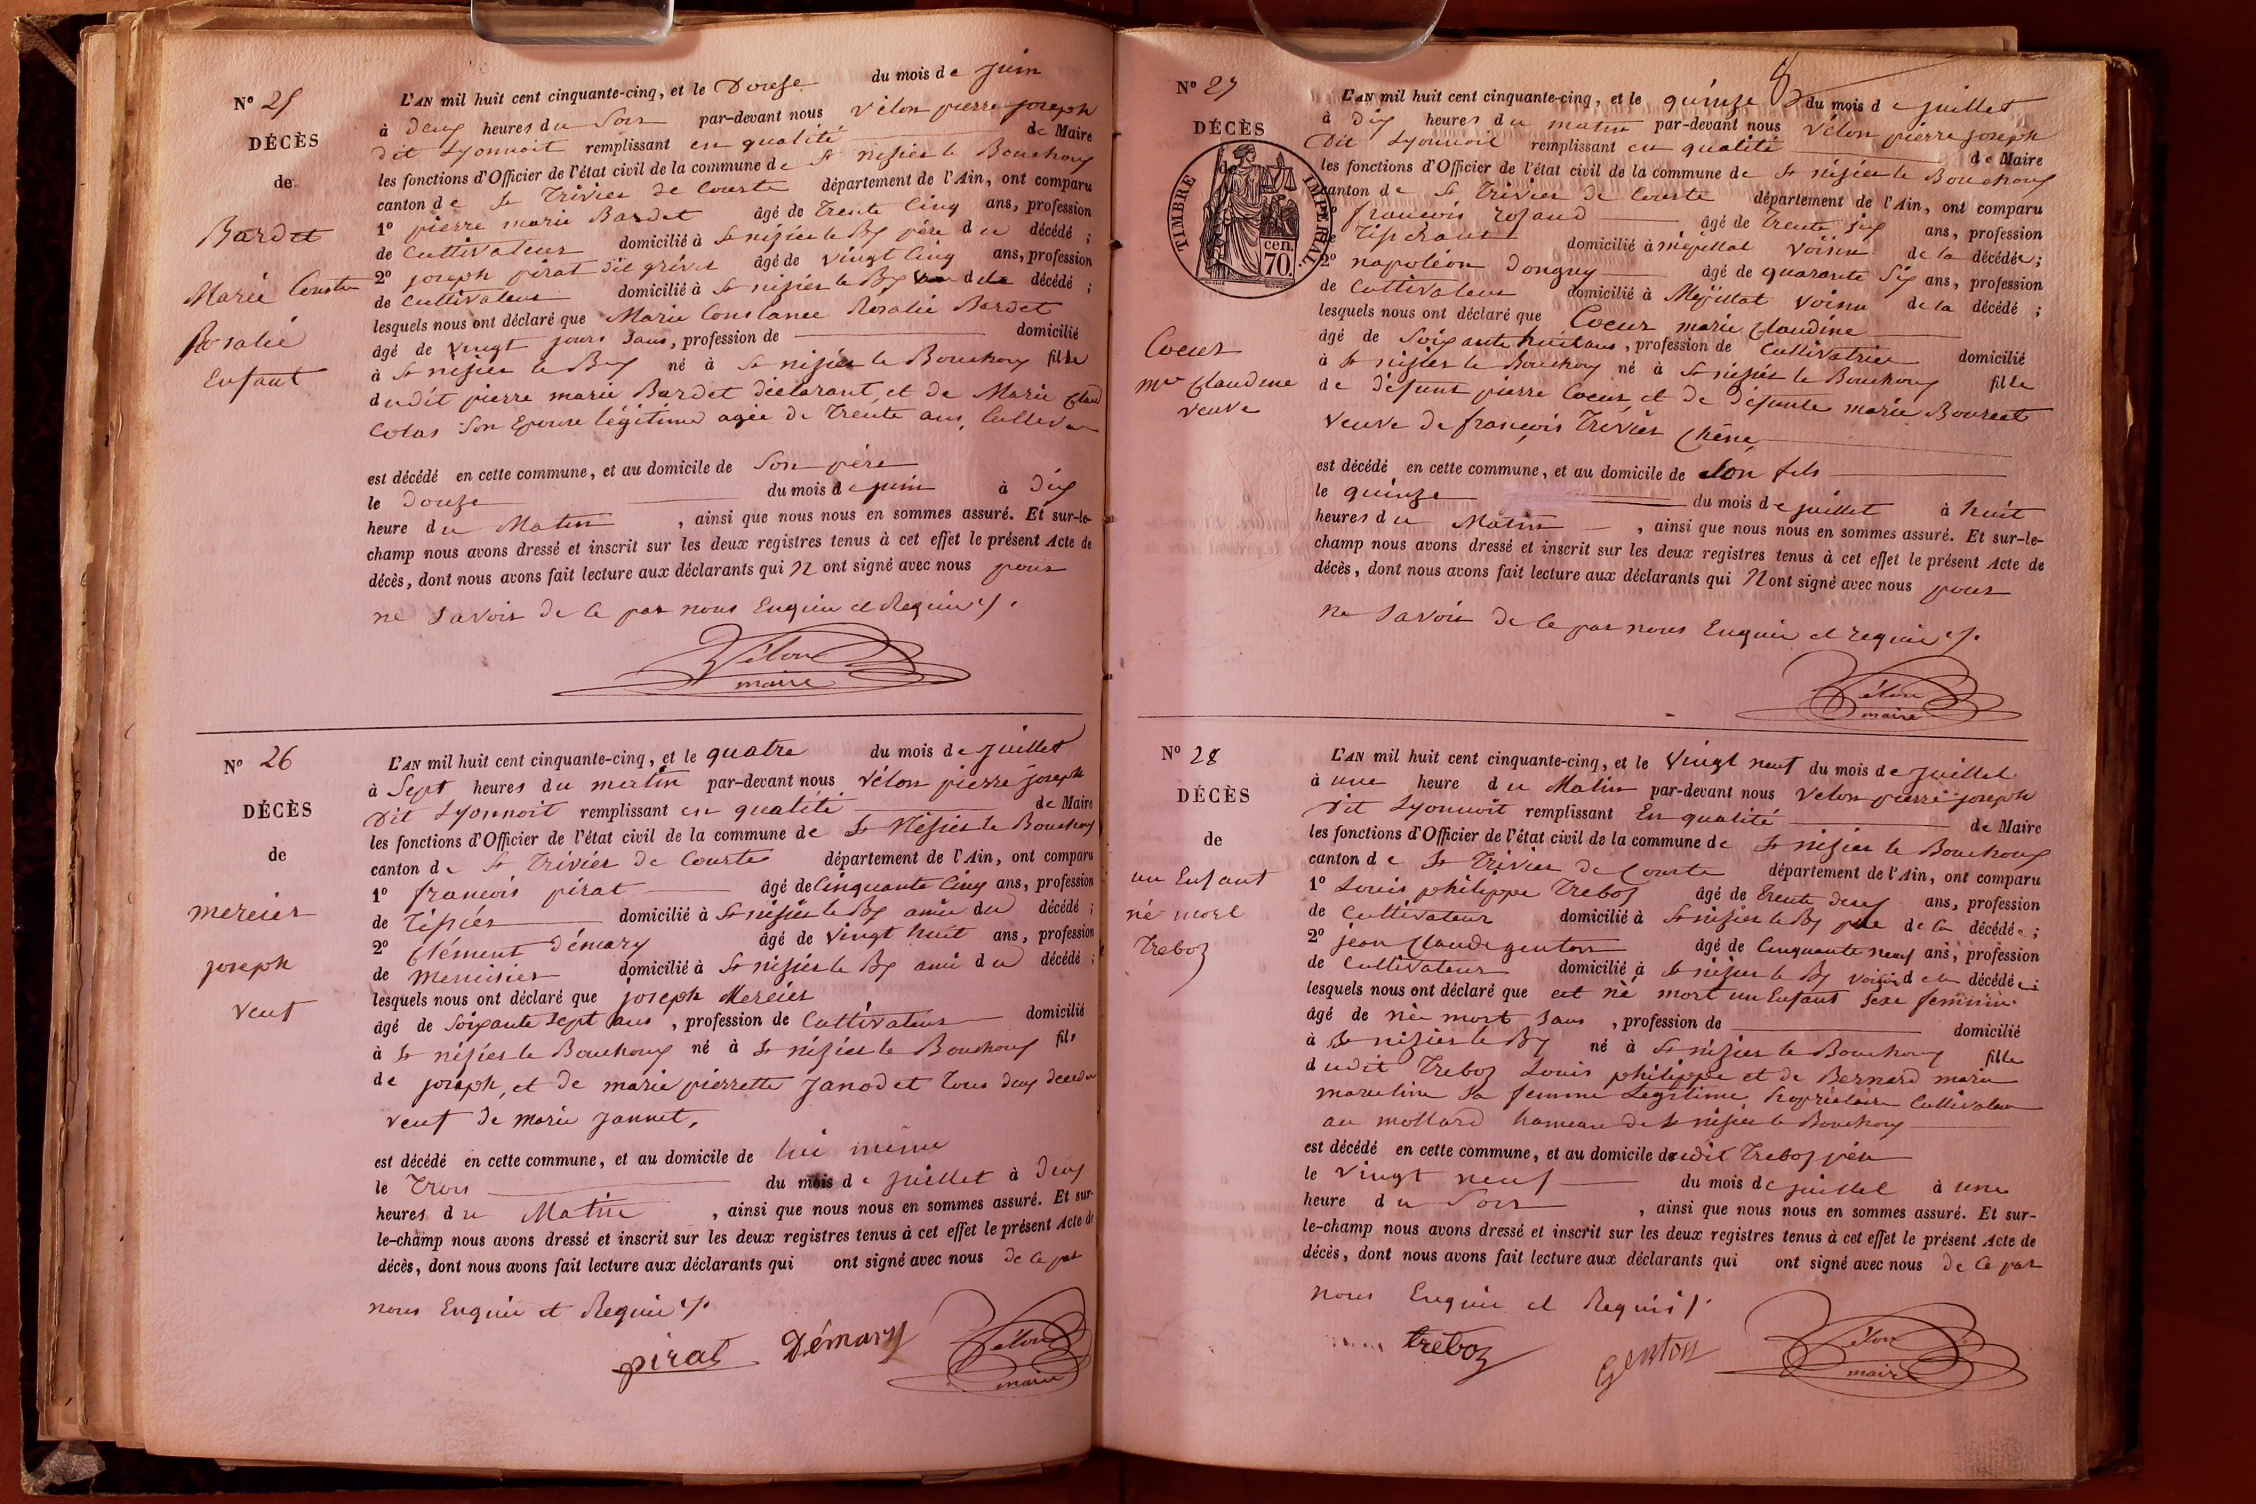 N° 25
DÉCÈS
de
Bardet
Marie Consta
Rosalie
Enfant
L'AN mil huit cent cinquante-cinq, et le Douze du mois de juin
à deux heures du Soir par-devant nous Vélon pierre joseph
dit Lyonnoit remplissant en qualité de Maire
les fonctions d'Officier de l'état civil de la commune de St nisier le Bouchoux
canton de St Trivier de Courte département de l'Ain, ont comparu
1° pierre marie Bardet âgé de Trente Cinq ans, profession
de Cultivateur domicilié à St nizier le Bx père du décédé ;
2° joseph pirat dit grivet âgé de vingt Cinq ans, profession
de Cultivateur domicilié à St nisier le Bx de la décédé ;
lesquels nous ont déclaré que Marie Constance Rosalie Bardet
âgé de vingt jours Sans, profession de domicilié
à St nisier le Bx né à St nisier le Bouchoux fille
dudit pierre marie Bardet déclarant, et de Marie Claud
Colas Son Epouse légitime agée de Trente ans, Cultiva
est décédé en cette commune, et au domicile de Son père
le douze du mois de juin à dix
heure du Matin , ainsi que nous nous en sommes assuré. Et sur-le-
champ nous avons dressé et inscrit sur les deux registres tenus à cet effet le présent Acte de
décès, dont nous avons fait lecture aux déclarants qui N ont signé avec nous pour
ne Savoir de ce par nous Enquie et Requie
Vélon
maire
N° 26
DÉCÈS
de
mercier
joseph
veuf
L'AN mil huit cent cinquante-cinq, et le quatre du mois de juillet
à Sept heures du matin par-devant nous Vélon pierre joseph
Dit Lyonnoit remplissant en qualité de Maire
les fonctions d'Officier de l'état civil de la commune de St Nisier le Bouchoux
canton de St Trivier de Courte département de l'Ain, ont comparu
1° francois pirat âgé de Cinquante Cinq ans, profession
de Tissier domicilié à St nisier le Bx amie du décédé ;
2° Clément Démary âgé de vingt huit ans, profession
de Menuisier domicilié à St nisier le Bx ami du décédé ;
lesquels nous ont déclaré que joseph Mercier
âgé de Soixante Sept ans , profession de Cultivateur domicilié
à St nisier le Bouchoux né à St nisier le Bouchoux fils
de joseph, et de marie pierrette Janodet Tous deux décédé
veuf de marie Jannet,
est décédé en cette commune, et au domicile de lui même
le Trois du mois de juillet à deux
heures du Matin , ainsi que nous nous en sommes assuré. Et sur-
le-champ nous avons dressé et inscrit sur les deux registres tenus à cet effet le présent Acte de
décès, dont nous avons fait lecture aux déclarants qui ont signé avec nous de ce par
nous Enquie et Requie
pirat Démary Vélon
maire
N° 27
DÉCÈS
TIMBRE IMPÉRIAL
cen.
70.
Coeur
mie Claudine
veuve
L'AN mil huit cent cinquante-cinq, et le quinze du mois de juillet
à dix heures du matin par-devant nous Vélon pierre joseph
Dit Lyonnoit remplissant en qualité de Maire
les fonctions d'Officier de l'état civil de la commune de St nisier le Bouchoux
canton de St Trivier de Courte département de l'Ain, ont comparu
francois rozand âgé de Trente Six ans, profession
de Tisserant domicilié à mépillat voisin de la décédée ;
2° napoléon Donguy âgé de quarante Six ans, profession
de Cultivateur domicilié à Mépillat voisin de la décédé ;
lesquels nous ont déclaré que Coeur marie Claudine
âgé de Soixante huit ans , profession de Cultivatrice domicilié
à St nisier le Bouchoux né à St nisier le Bouchoux fille
de défunt pierre Coeur, et de défunte marie Bourcet
veuve de francois Trivier Chêne,
est décédé en cette commune, et au domicile de Son fils
le quinze du mois de juillet à huit
heures du Matin , ainsi que nous nous en sommes assuré. Et sur-le-
champ nous avons dressé et inscrit sur les deux registres tenus à cet effet le présent Acte de
décès, dont nous avons fait lecture aux déclarants qui N ont signé avec nous pour
ne Savoir de ce par nous Enquie et requie
Vélon
maire
N° 28
DÉCÈS
de
un Enfant
né mort
Treboz
L'AN mil huit cent cinquante-cinq, et le Vingt neuf du mois de juillet
à une heure du Matin par-devant nous Velon pierre joseph
dit Lyonnoit remplissant En qualité de Maire
les fonctions d'Officier de l'état civil de la commune de St nisier le Bouchoux
canton de St Trivier de Courte département de l'Ain, ont comparu
1° Louis philippe Treboz âgé de Trente deux ans, profession
de Cultivateur domicilié à St nisier le Bx père de la décédée ;
2° jean Claude genton âgé de Cinquante neuf ans, profession
de Cultivateur domicilié à St nisier le Bx voisin de la décédée ;
lesquels nous ont déclaré que est né mort un Enfant Sexe feminin
âgé de née mort Sans , profession de domicilié
à St nisier le Bx né à St nisier le Bouchoux fille
dudit Treboz Louis philippe et de Bernard marie
marceline Sa femme Legitime, Propriétaire Cultivateur
au mollard hameau de St nisier le Bouchoux
est décédé en cette commune, et au domicile dudit Treboz père
le Vingt neuf du mois de juillet à une
heure du Soir , ainsi que nous nous en sommes assuré. Et sur-
le-champ nous avons dressé et inscrit sur les deux registres tenus à cet effet le présent Acte de
décès, dont nous avons fait lecture aux déclarants qui ont signé avec nous de ce par
nous Enquie et Requis
treboz Genton Vélon
maire